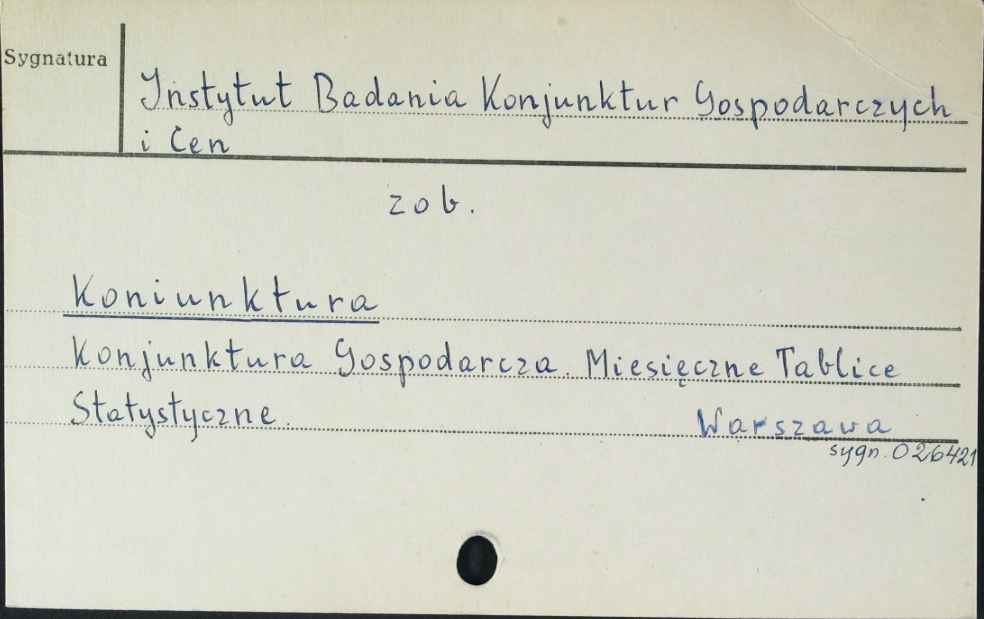 Sygnatura
Instytut Badania Konjunktur Gospodarczych
i Cen
zob.
Koniunktura
Konjunktura Gospodarcza. Miesięczne Tablice
Statystyczne. Warszawa
sygn. 026421